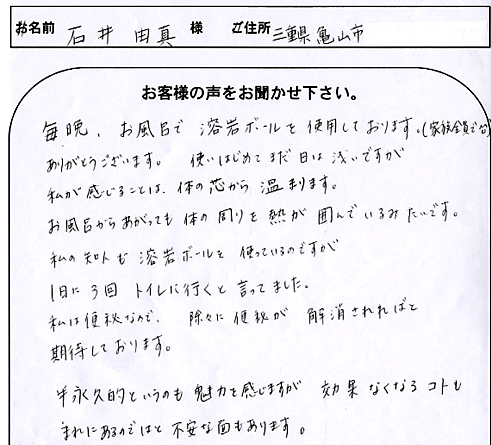 お名前 石井由真 様 ご住所 三重県亀山市
お客様の声をお聞かせ下さい。
毎晩、お風呂で溶岩ボールを使用しております。(家族全員で
ありがとうございます。使いはじめてまだ日は浅いですが
私が感じることは、体の芯から温まります。
お風呂からあがっても体の周りを熱が囲んでいるみたいです。
私の知人も溶岩ボールを使っているのですが
1日に3回トイレに行くと言ってました。
私は便秘なので、除々に便秘が解消されればと
期待しております。
半永久的というのも魅力を感じますが 効果なくなるコトも
まれにあるのではと不安な面もあります。